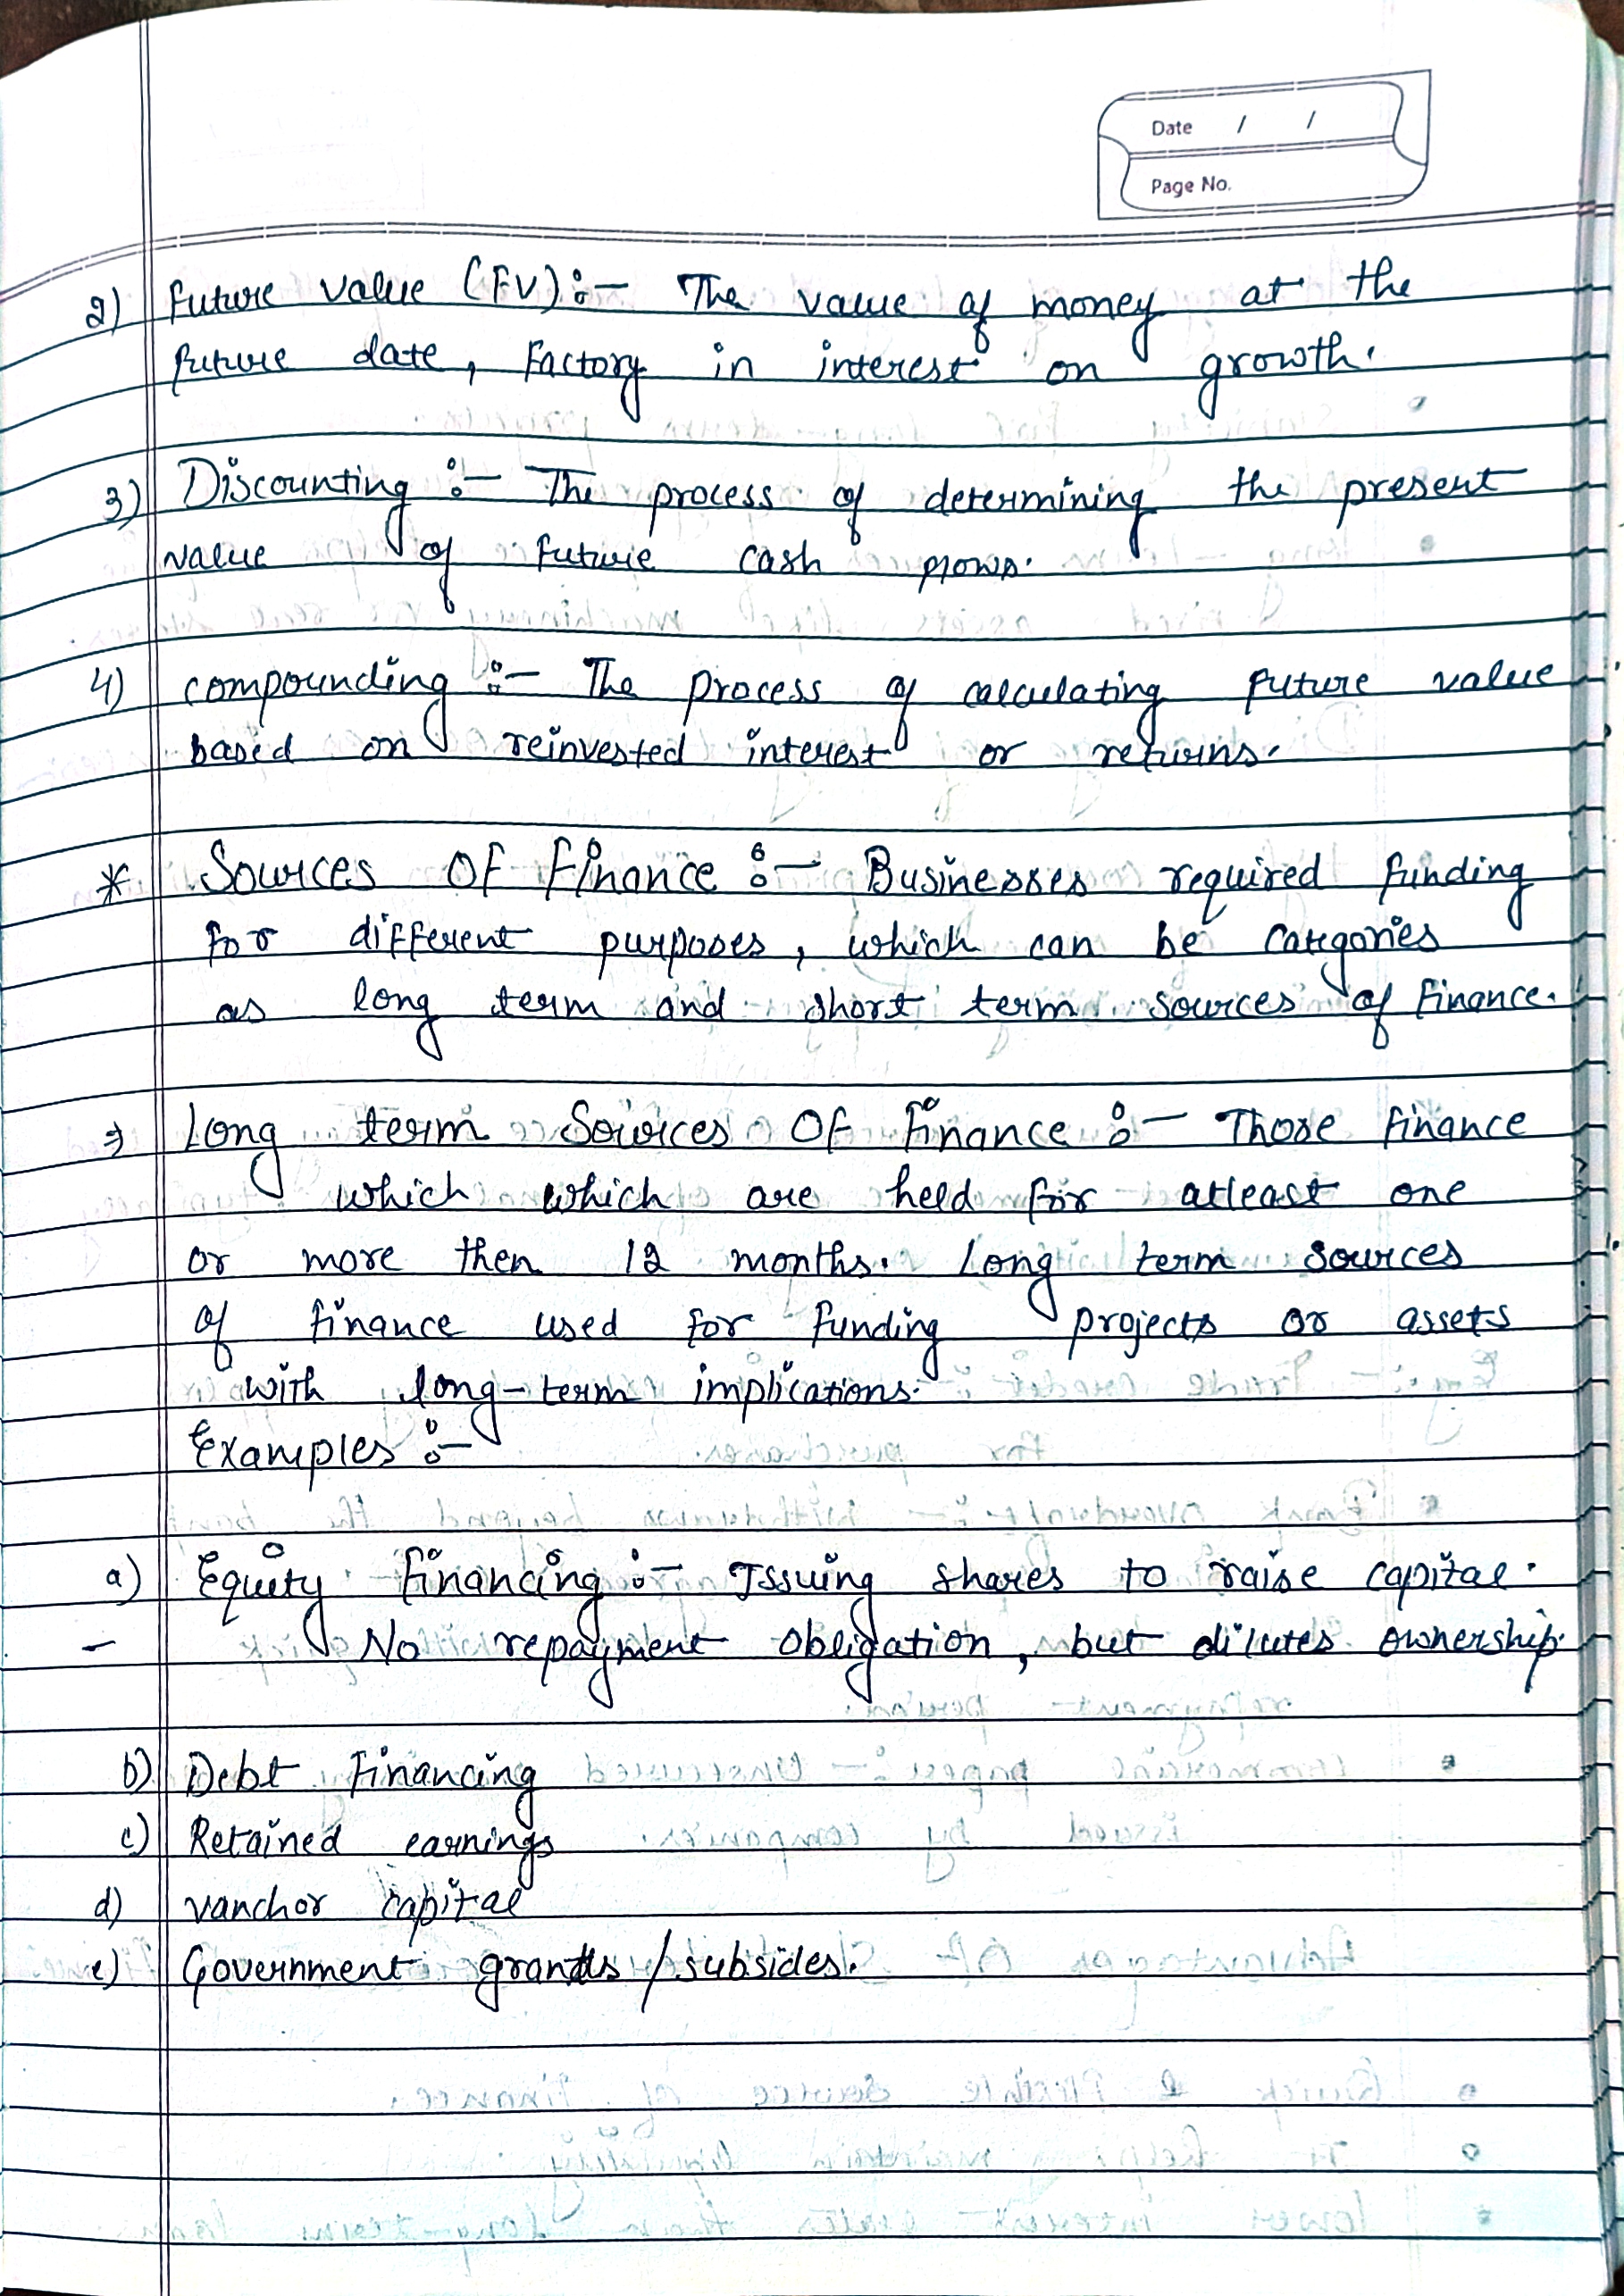 Date / /
Page No.
2) Future value (FV) :- The value of money at the
future date, Factory in interest on growth.
3) Discounting :- The process of determining the present
value of future cash flows.
4) compounding :- The process of calculating future value
based on reinvested interest or returns.
* Sources Of Finance :- Businesses required funding
for different purposes, which can be categories
as long term and short term sources of finance.
⇒ Long term Sources Of Finance :- Those finance
which which are held for atleast one
or more then 12 months. Long term sources
of finance used for funding projects or assets
with long-term implications.
Examples :-
a) Equity financing :- Issuing shares to raise capital.
- No repayment obligation, but dilutes ownership.
b) Debt Financing
c) Retained earnings
d) vanchor capital
e) Government grants / subsides.